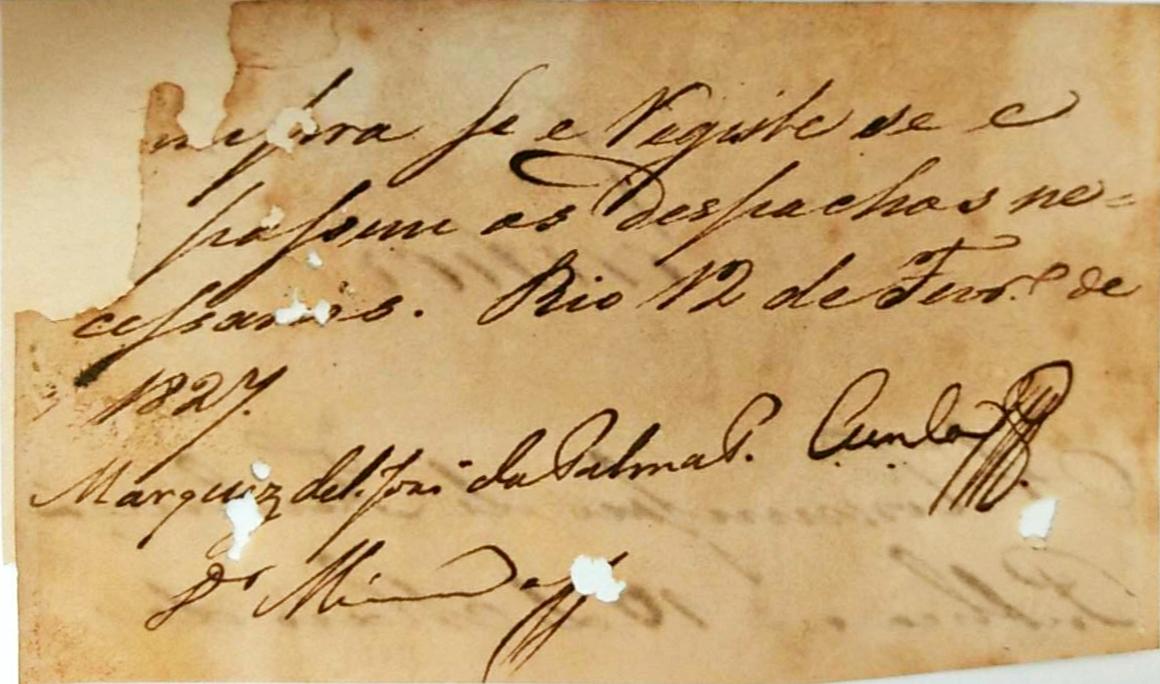 mpra se e Registe se e
passem os Despachos ne=
cessarios. Rio 12 de Fevr.º de
1827.
Marquez de S. João da Palma P. Cunha
Dr Miranda